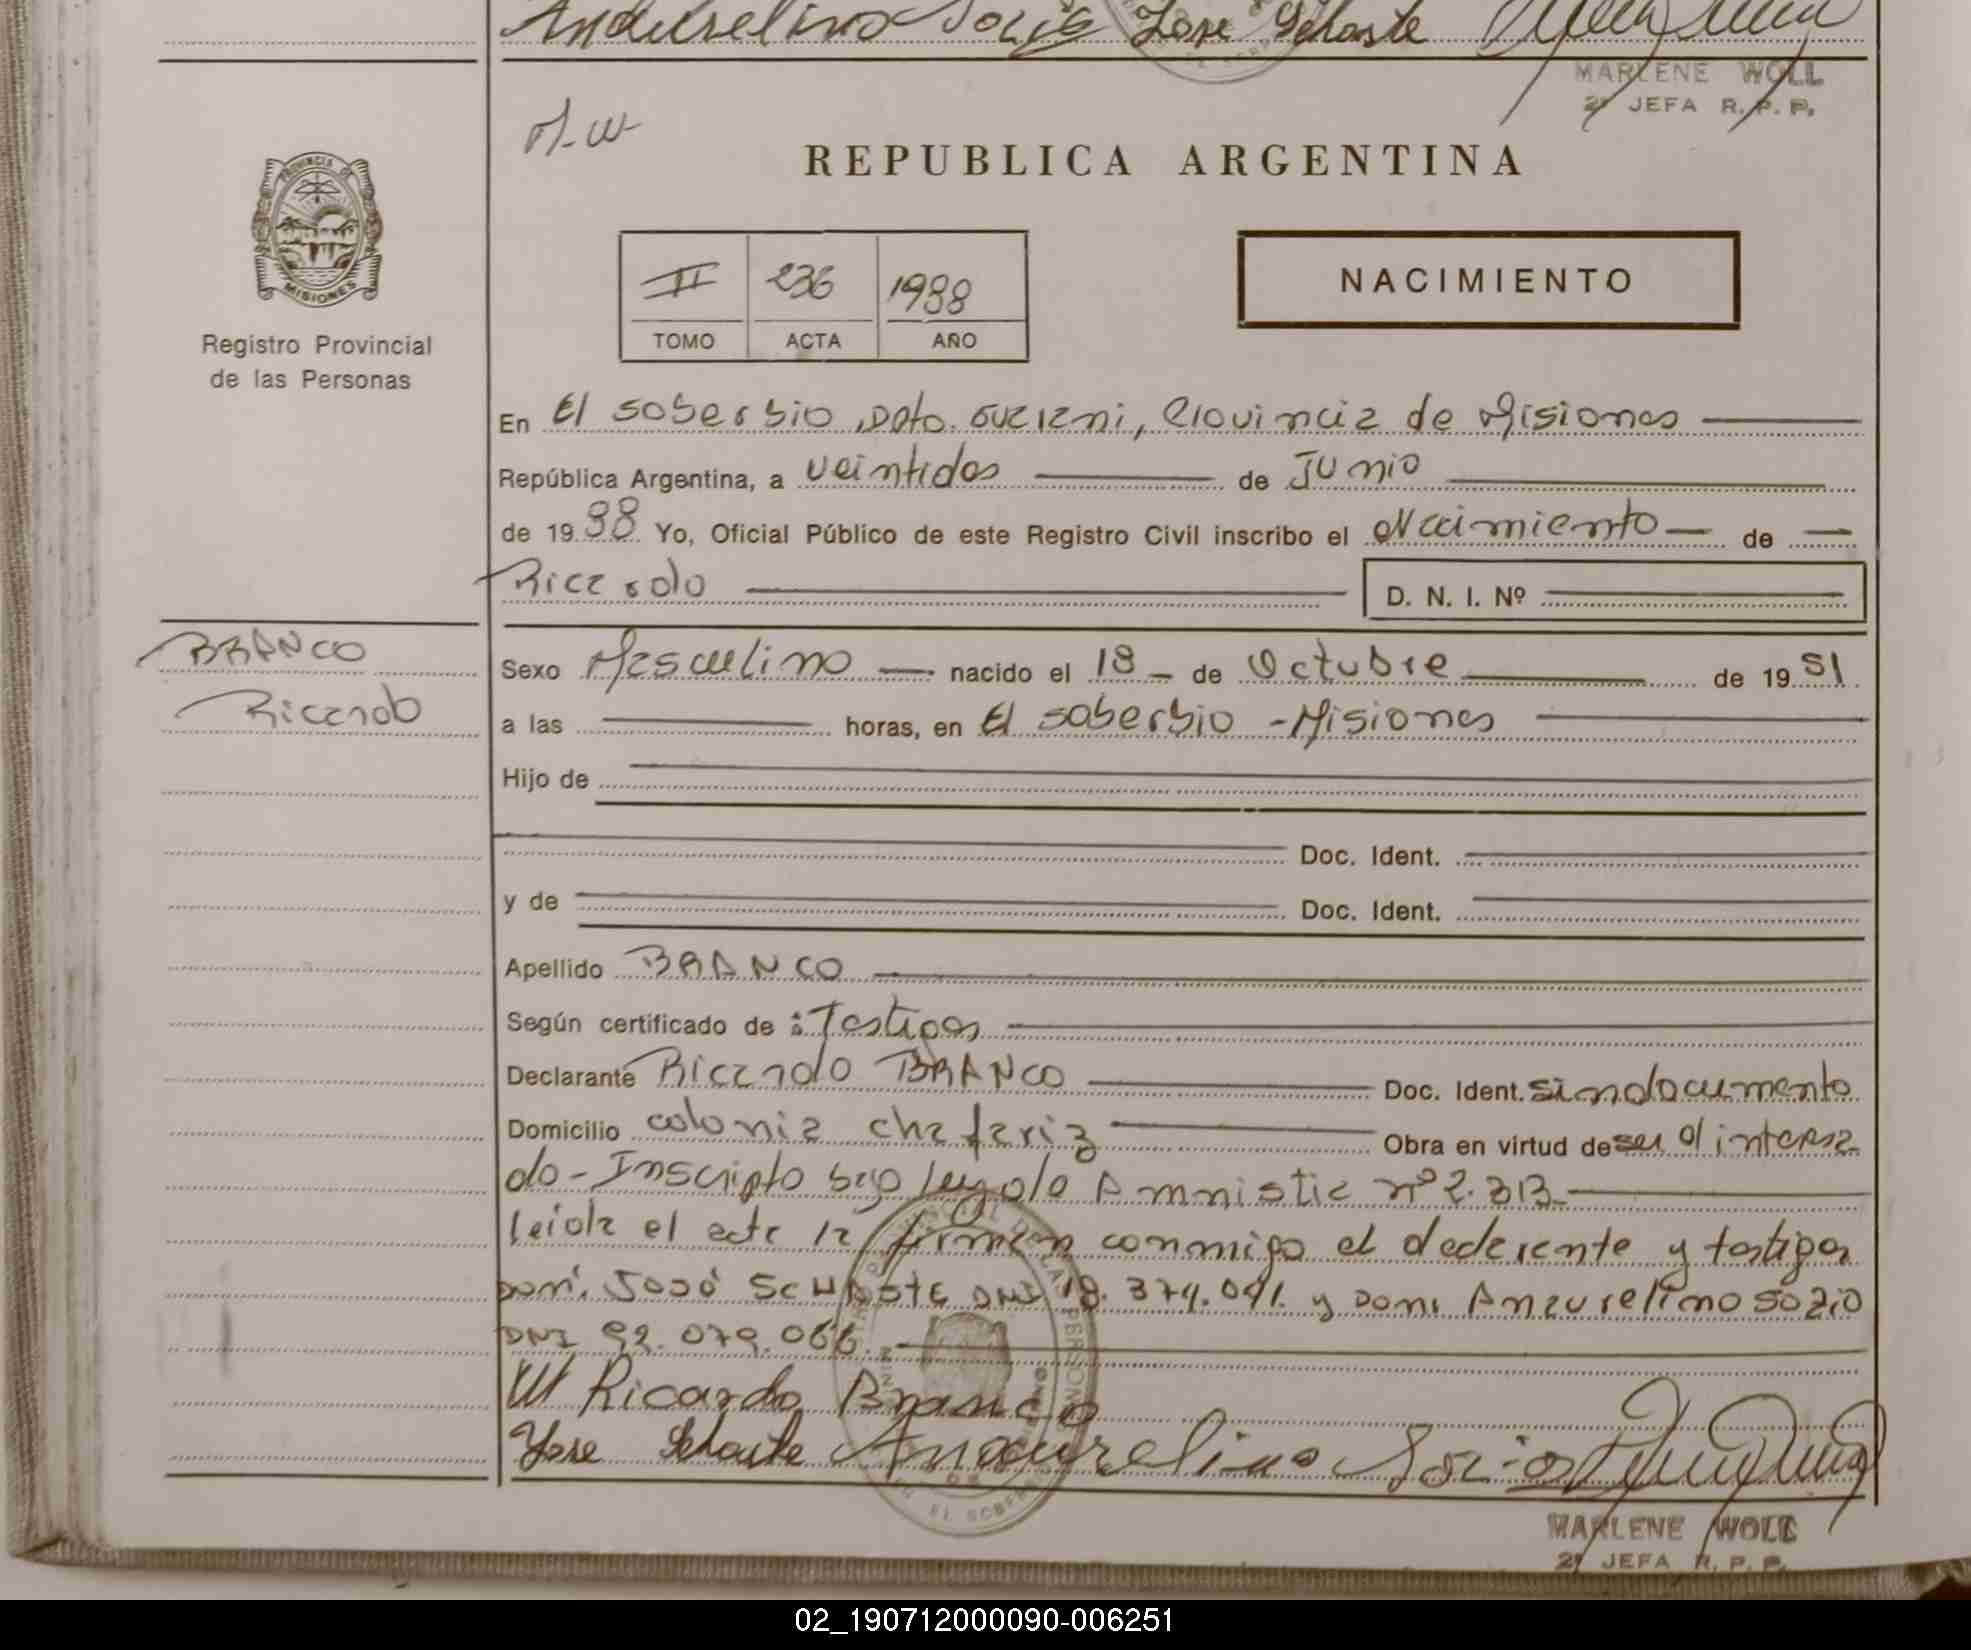 José Schaste
MARLENE WOLL
2ª JEFA R. P. P.
M-W
REPUBLICA ARGENTINA
PROVINCIA DE
MISIONES
Registro Provincial
de las Personas
II 236 1988
TOMO ACTA AÑO
NACIMIENTO
En El soberbio, Dpto. Guarani, Provincia de Misiones
República Argentina, a veintidos de Junio
de 1988 Yo, Oficial Público de este Registro Civil inscribo el Nacimiento de
Ricardo D. N. I. Nº
BRANCO
Ricardo
Sexo Masculino nacido el 18 de Octubre de 1951
a las horas, en El soberbio - Misiones
Hijo de
Doc. Ident.
y de Doc. Ident.
Apellido BRANCO
Según certificado de : Testigos
Declarante Ricardo BRANCO Doc. Ident. sin documento
Domicilio colonia chafariz Obra en virtud de ser el interesa
do - Inscripto bajo ley de Amnistia nº 2.313
leída el acta la firman conmigo el declarante y testigos
Don: José SCHASTE DNI 18.374.091. y Don: Anaurelino
DNI 92.079.066.
Ricardo Branco
Jose Schaste Anaurelino
MARLENE WOLL
2ª JEFA R. P. P.
02_190712000090-006251